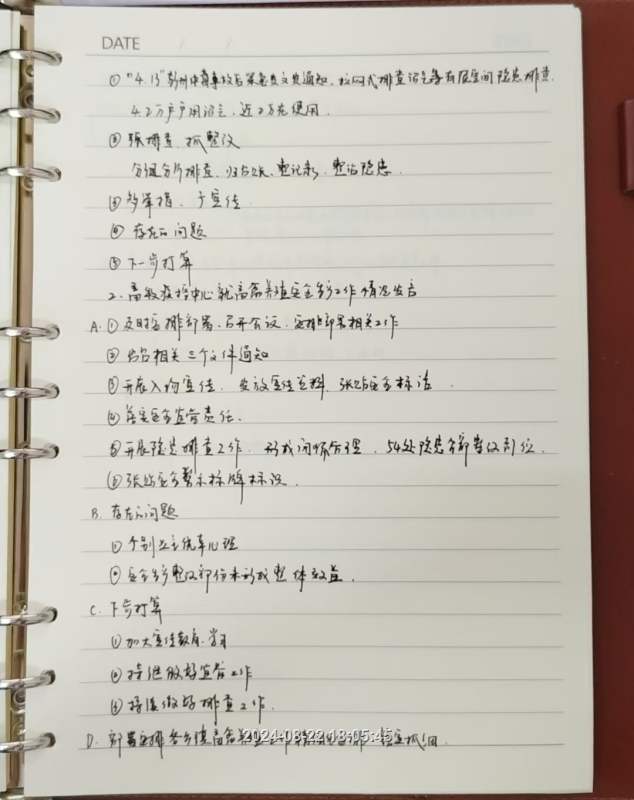 DATE / /
① "4.13"彭州中毒事故后 发文发通知、拉网式排查沼气等有限空间隐患排查.
4.2万户户用沼气,近2万在使用.
② 强排查、抓整改
分组分片排查、归台账、整治隐患.
③ 多举措、广宣传
④ 存在的问题
⑤ 下一步打算
2、畜牧疫控中心就畜禽养殖安全生产工作情况发言
A. ① 及时安排部署、召开会议、安排部署相关工作
② 转发相关三个文件通知
③ 开展入场宣传、发放宣传资料、张贴安全标语.
④ 落实安全监管责任.
⑤ 开展隐患排查工作、形成闭环管理、54处隐患全部整改到位.
⑥ 张贴安全警示标牌标识.
B. 存在的问题
① 个别业主侥幸心理
② 安全生产整改部份未形成整体效益.
C. 下步打算
① 加大宣传教育、学习
② 持续做好监管工作
③ 持续做好排查工作.
D. 部署安排各乡镇畜禽养殖
2024-08-22 18:05:45